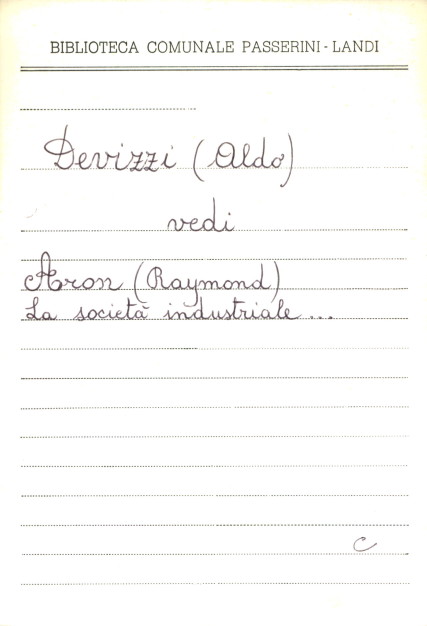 BIBLIOTECA COMUNALE PASSERINI - LANDI
Devizzi (Aldo)
vedi
Aron (Raymond)
La società industriale ...
C